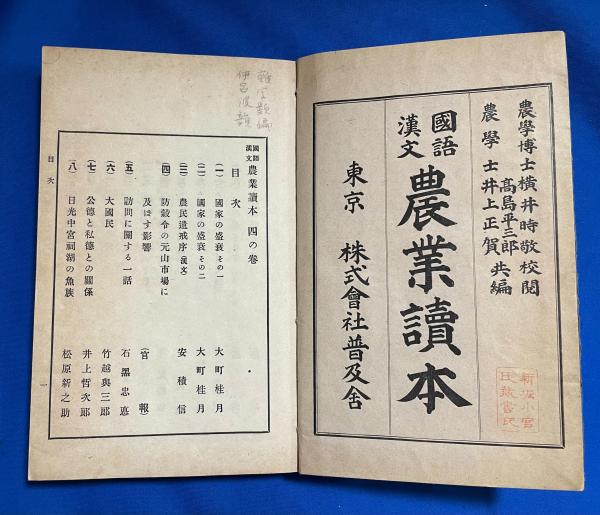 農學博士橫井時敬校閱
高島平三郎
農學士井上正賀 共編
國語
漢文
農業讀本
東京 株式會社普及舍
國語
漢文 農業讀本 四の卷
目次
(一) 國家の盛衰その一 大町桂月
(二) 國家の盛衰その二 大町桂月
(三) 農民遺戒序(漢文) 安積信
(四) 防穀令の元山市場に
及ぼす影響 (官報)
(五) 訪問に關する一話 石黑忠悳
(六) 大國民 竹越與三郎
(七) 公德と私德との關係 井上哲次郎
(八) 日光中宮祠湖の魚族 松原新之助
目次
一
伊呂波韻